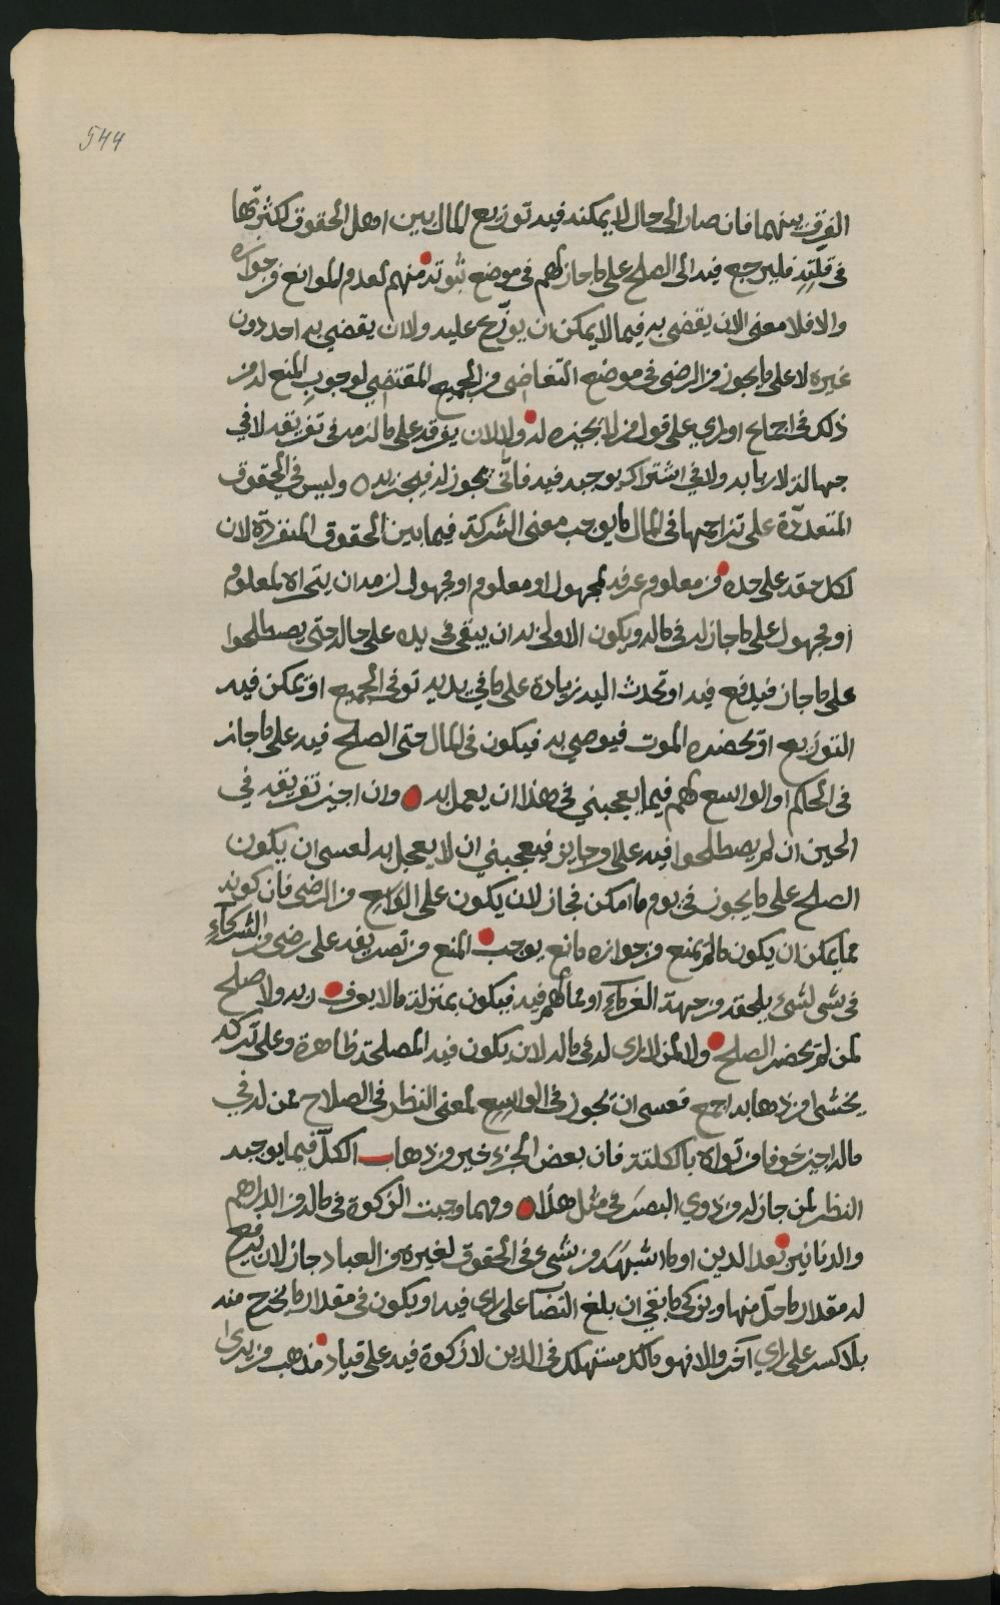 544
الفرق بينهما فان صار الى حال لا يمكنه فيه توزيع المال بين اهل الحقوق لكثرتها
في قلته فليرجع فيه الى الصلح على ما جاز لهم في موضع ثبوته منهم لعدم الموانع من جوازه
والا فلا معنى لان يقضى به فيما لا يمكن ان يوزع عليه ولا ان يقضي به احد دون
غيره لا على ما يجوز من الرضى في موضع التغاضي من الجميع المقتضي لوجوب المنع له من
ذلك في اجماع او راي على قول من لا يجيزه له ولا لان يفرقه على ما لزمه في تفريقه لا في
جهالة لاربابه ولا في اشتراك يوجبه فيه فانى يجوز له فيجزيه وليس في الحقوق
المتعددة على تزاحمها في المال ما يوجب معنى الشركة فيما بين الحقوق المنفردة لان
لكل حقه على حده من معلوم عرفه لمجهول او معلوم او مجهول لزمه ان يتحراه لمعلوم
او مجهول على ما جاز له في ماله ويكون الاولى به ان يبقى في يده على حاله حتى يصطلحوا
على ما جاز فيدفع فيه او تحدث اليه زيادة على ما في يديه توفي الجميع او تمكن فيه
التوزيع او يحضره الموت فيوصي به فيكون في المال حتى الصلح فيه على ما جاز
في الحكم او الواسع لهم فيما يعجبني في هذا ان يعمل به وان اجيز تفريقه في
الحين ان لم يصطلحوا فيه على وجايز فيعجبني ان لا يعجل به لعسى ان يكون
الصلح على ما يجوز في يوم ما امكن فجاز لان يكون على من الرضى فان كونه
مما يمكن ان يكون ما لم يمنع من جوازه مانع يوجب المنع من تصديقه على رضى من الشركاء
في شي لشيء يلحقه من جهة الغرماء او مما لهم فيه فيكون بمنزلة ما لا يعرف ربه ولا صلح
لمن لم يحضر الصلح ولا لمن لا راى له في ماله لان يكون فيه المصلحة ظاهرة وعلى تركه
يخشى من ذهابه اجمع فعسى ان يجوز في الواسع لمعنى النظر في الصلاح لمن له في
ماله اجيز خوفا من تواه بالكلية فان بعض الجزء خير من ذهاب الكل فيما يوجبه
النظر لمن جاز له من ذوي البصر في مثل هذا ومهما وجبت الزكوة في ماله من الدراهم
والدنانير بعد الدين او ما اشبهه من شيء في الحقوق لغيره من العباد جاز لان يدفع
له مقدار ما حل منها ويزكي ما بقي ان بلغ النصاب على راى فيه او يكون في مقدار ما يخرج منه
بلا كسر على راي آخر والا فهو ماله مستهلك في الدين لا زكوة فيه على قياد مذهب من يرى